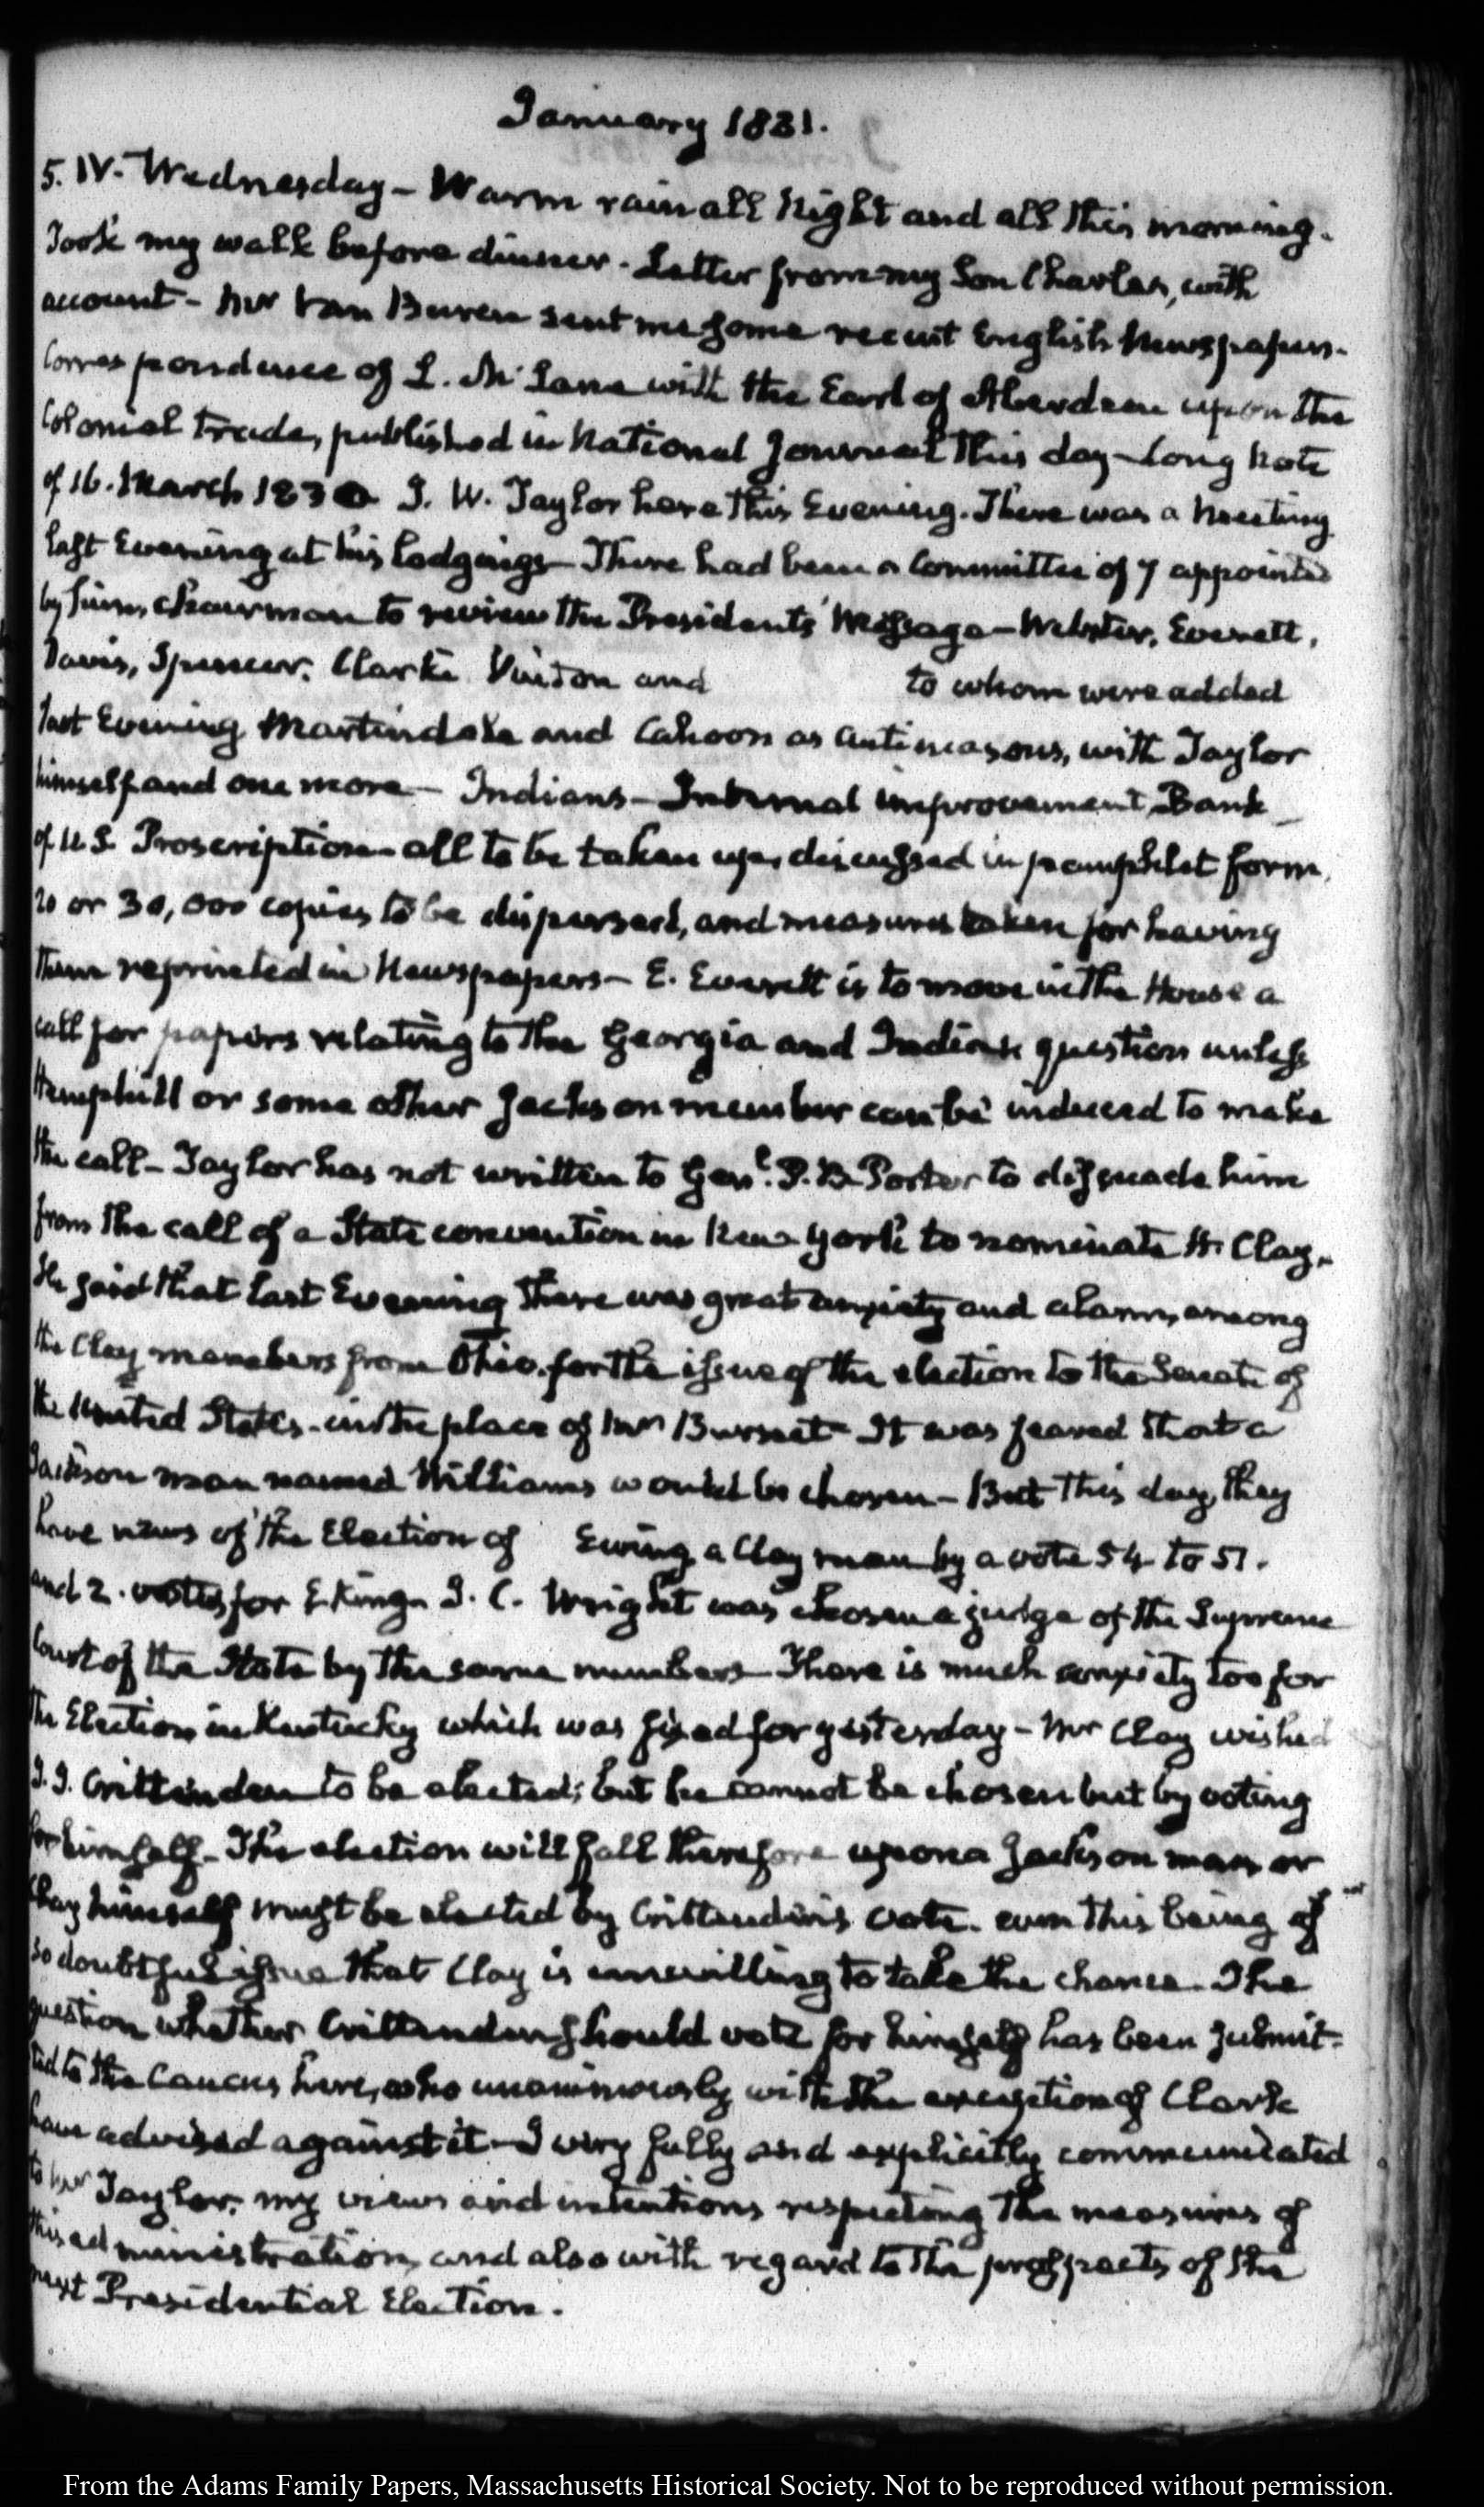 January 1831.
5. IV. Wednesday – Warm rain all Night and all this morning.
Took my walk before dinner. Letter from my Son Charles, with
account – Mr Van Buren sent me some recent English Newspapers.
Correspondence of L. McLane with the Earl of Aberdeen upon the
Colonial Trade, published in National Journal this day – Long Note
of 16. March 1830 J. W. Taylor here this Evening. There was a Meeting
last Evening at his lodgings – There had been a Committee of 7 appointed
by him, chairman to review the President's Message – Webster, Everett,
Davis, Spencer. Clarke Vinton and to whom were added
last Evening Martindale and Cahoon as Antimasons, with Taylor
himself and one more – Indians – Internal improvement, Bank
of U.S. Proscription – all to be taken up, discussed in pamphlet form,
20 or 30,000 copies to be dispersed, and measures taken for having
them reprinted in Newspapers – E. Everett is to move in the House a
call for papers relating to the Georgia and Indian question unless
Hemphill or some other Jackson member can be induced to make
the call – Taylor has not written to Genl. P. B. Porter to dissuade him
from the call of a State convention in New York to nominate H. Clay.
He said that last Evening there was great anxiety and alarm, among
the Clay members from Ohio. for the issue of the election to the Senate of
the United States. in the place of Mr Burnet – It was feared that a
Jackson man named Williams would be chosen – But this day, they
have news of the Election of Ewing a Clay man by a vote 54 to 51.
and 2. votes for E. King. J. C. Wright was chosen a judge of the Supreme
Court of the State by the same numbers – There is much anxiety too for
the Election in Kentucky which was fixed for yesterday – Mr Clay wished
J. J. Crittenden to be elected; but he cannot be chosen but by voting
for himself – The election will fall therefore upon a Jackson man, or
Clay himself must be elected by Crittenden's vote. even this being of
so doubtful issue that Clay is unwilling to take the chance. The
question whether Crittenden should vote for himself has been submit-
ted to the Caucus here, who unanimously with the exception of Clark
have advised against it – I very fully and explicitly communicated
to Mr Taylor, my views and intentions respecting the measures of
this administration, and also with regard to the prospects of the
next Presidential Election.
From the Adams Family Papers, Massachusetts Historical Society. Not to be reproduced without permission.